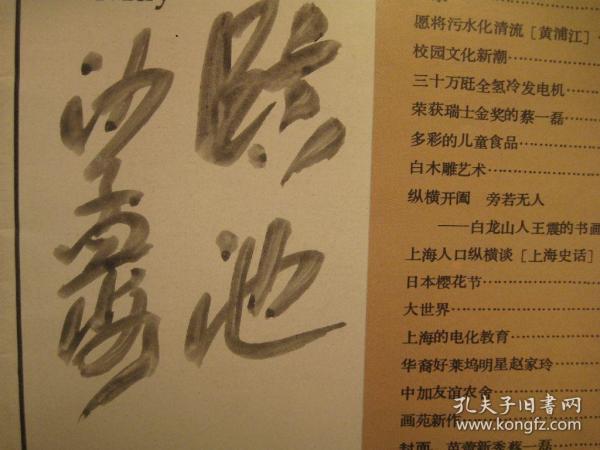 临池
沙孟海
愿将污水化清流［黄浦江］
校园文化新潮
三十万瓩全氢冷发电机
荣获瑞士金奖的蔡一磊
多彩的儿童食品
白木雕艺术
纵横开阖 旁若无人
——白龙山人王震的书画
上海人口纵横谈［上海史话］
日本樱花节
大世界
上海的电化教育
华裔好莱坞明星赵家玲
中加友谊农舍
画苑新作
封面 芭蕾新秀蔡一磊
孔夫子旧书网
www.kongfz.com